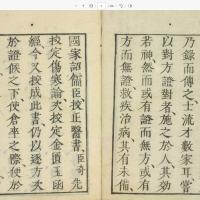 乃錄而傳之士流才數家耳嘗
以對方證對者施之於人其効
若神然而或有證而無方或有
方而無證救疾治病其有未備
國家詔儒臣挍正醫書臣奇先
挍定傷寒論次挍定金匱玉函
經今又挍成此書仍以逐方次
於證候之下使倉卒之際便於